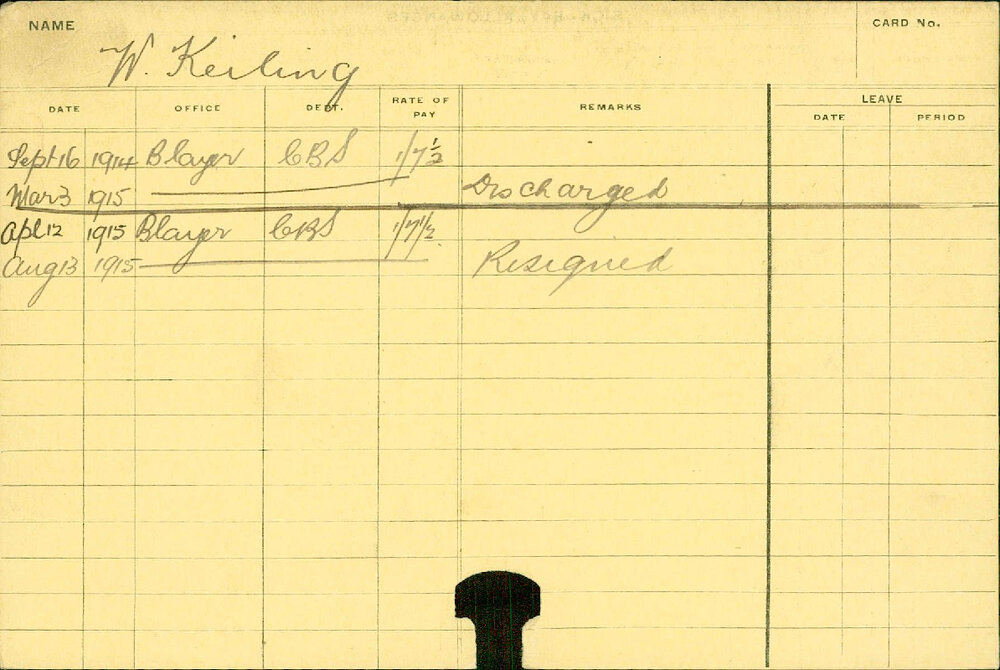 NAME
CARD No.
W. Keiling
DATE OFFICE DEPT. RATE OF PAY REMARKS LEAVE
DATE PERIOD
Sept 16 1914 Blayer CBS 1/7½
Mar 3 1915 Discharged
Apl 12 1915 Blayer CBS 1/7½
Aug 13 1915 Resigned